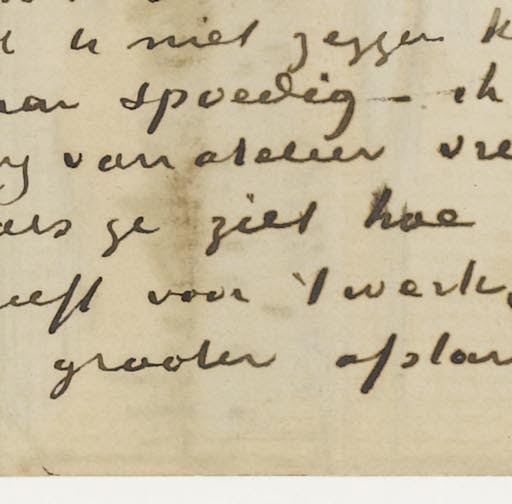 u niet zeggen k
aar spoedig – ik
ng van atelier vre
als ge ziet hoe
eeft voor 't werk,
grooter afstan